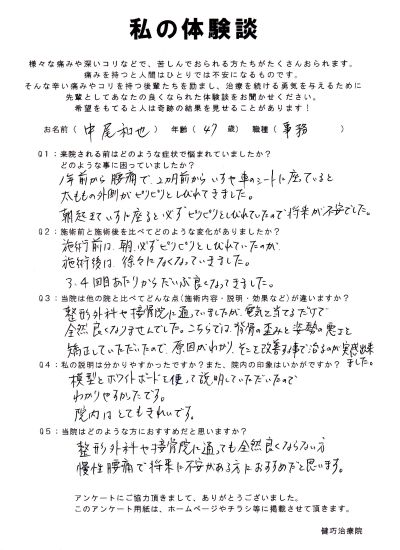 私の体験談
様々な痛みや深いコリなどで、苦しんでおられる方たちがたくさんおられます。
痛みを持つと人間はひとりでは不安になるものです。
そんな辛い痛みやコリを持つ後輩たちを励まし、治療を続ける勇気を与えるために
先輩としてあなたの良くなられた体験談をお聞かせください。
希望をもてると人は奇跡の結果を見せることがあります！
お名前（ 中尾和也 ） 年齢（ 47 歳） 職種（ 事務 ）
Q1：来院される前はどのような症状で悩まれていましたか？
どのような事に困っていましたか？
1年前から腰痛で、2カ月前からいすや車のシートに座っていると
太ももの外側がピリピリとしびれてきました。
朝起きていすに座ると必ずピリピリとしびれていたので将来が不安でした。
Q2：施術前と施術後を比べてどのような変化がありましたか？
施術前は、朝、必ずピリピリとしびれていたのが、
施術後は、徐々になくなっていきました。
3、4回目あたりからだいぶ良くなってきました。
Q3：当院は他の院と比べてどんな点(施術内容・説明・効果など)が違いますか？
整形外科や接骨院に通っていましたが、電気を当てるだけで
全然良くなりませんでした。こちらでは、背骨の歪みと姿勢の悪さを
矯正していただいたので、原因がわかり、そこを改善する事で治るのが実感出来
ました。
Q4：私の説明は分かりやすかったですか？また、院内の印象はいかがですか？
模型とホワイトボードを使って説明していただいたので
わかりやすかったです。
院内はとてもきれいです。
Q5：当院はどのような方におすすめだと思いますか？
整形外科や接骨院に通っても全然良くならない方
慢性腰痛で将来に不安がある方におすすめだと思います。
アンケートにご協力頂きまして、ありがとうございました。
このアンケート用紙は、ホームページやチラシ等に掲載させて頂きます。
健巧治療院